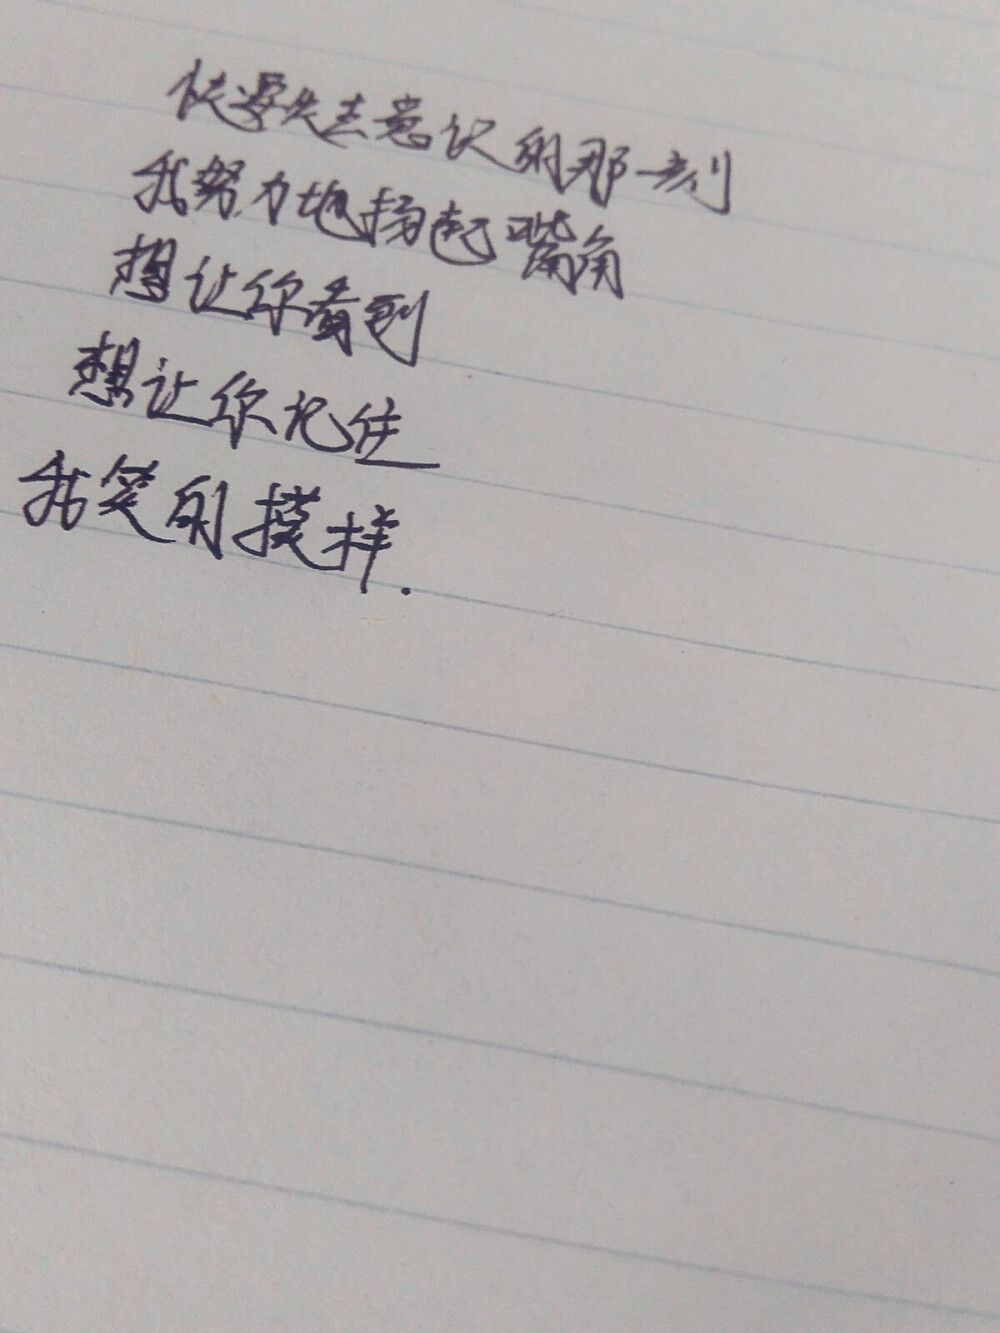 快要失去意识的那一刻
我努力地扬起嘴角
想让你看到
想让你记住
我笑的模样.